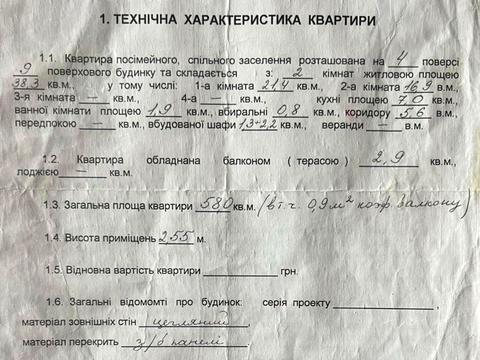 1. ТЕХНІЧНА ХАРАКТЕРИСТИКА КВАРТИРИ
1.1. Квартира посімейного, спільного заселення розташована на 4 поверсі
9 поверхового будинку та складається з: 2 кімнат житловою площею
38,3 кв.м., у тому числі: 1-а кімната 21,4 кв.м., 2-а кімната 16,9 в.м.,
3-я кімната — кв.м., 4-а — кв.м., кухні площею 7,0 кв.м.,
ванної кімнати площею 1,9 кв.м., вбиральні 0,8 кв.м., коридору 5,6 в.м.,
передпокою — кв.м., вбудованої шафи 1,3+2,2 кв.м., веранди — в.м.
1.2. Квартира обладнана балконом ( терасою ) 2,9 кв.м.,
лоджією — кв.м.
1.3. Загальна площа квартири 58,0 кв.м. (в т.ч. 0,9 м² коэф. балкону)
1.4. Висота приміщень 2,55 м.
1.5. Відновна вартість квартири грн.
1.6. Загальні відомомті про будинок: серія проекту ,
матеріал зовнішніх стін цегляний ,
матеріал перекрить з/б панелі .